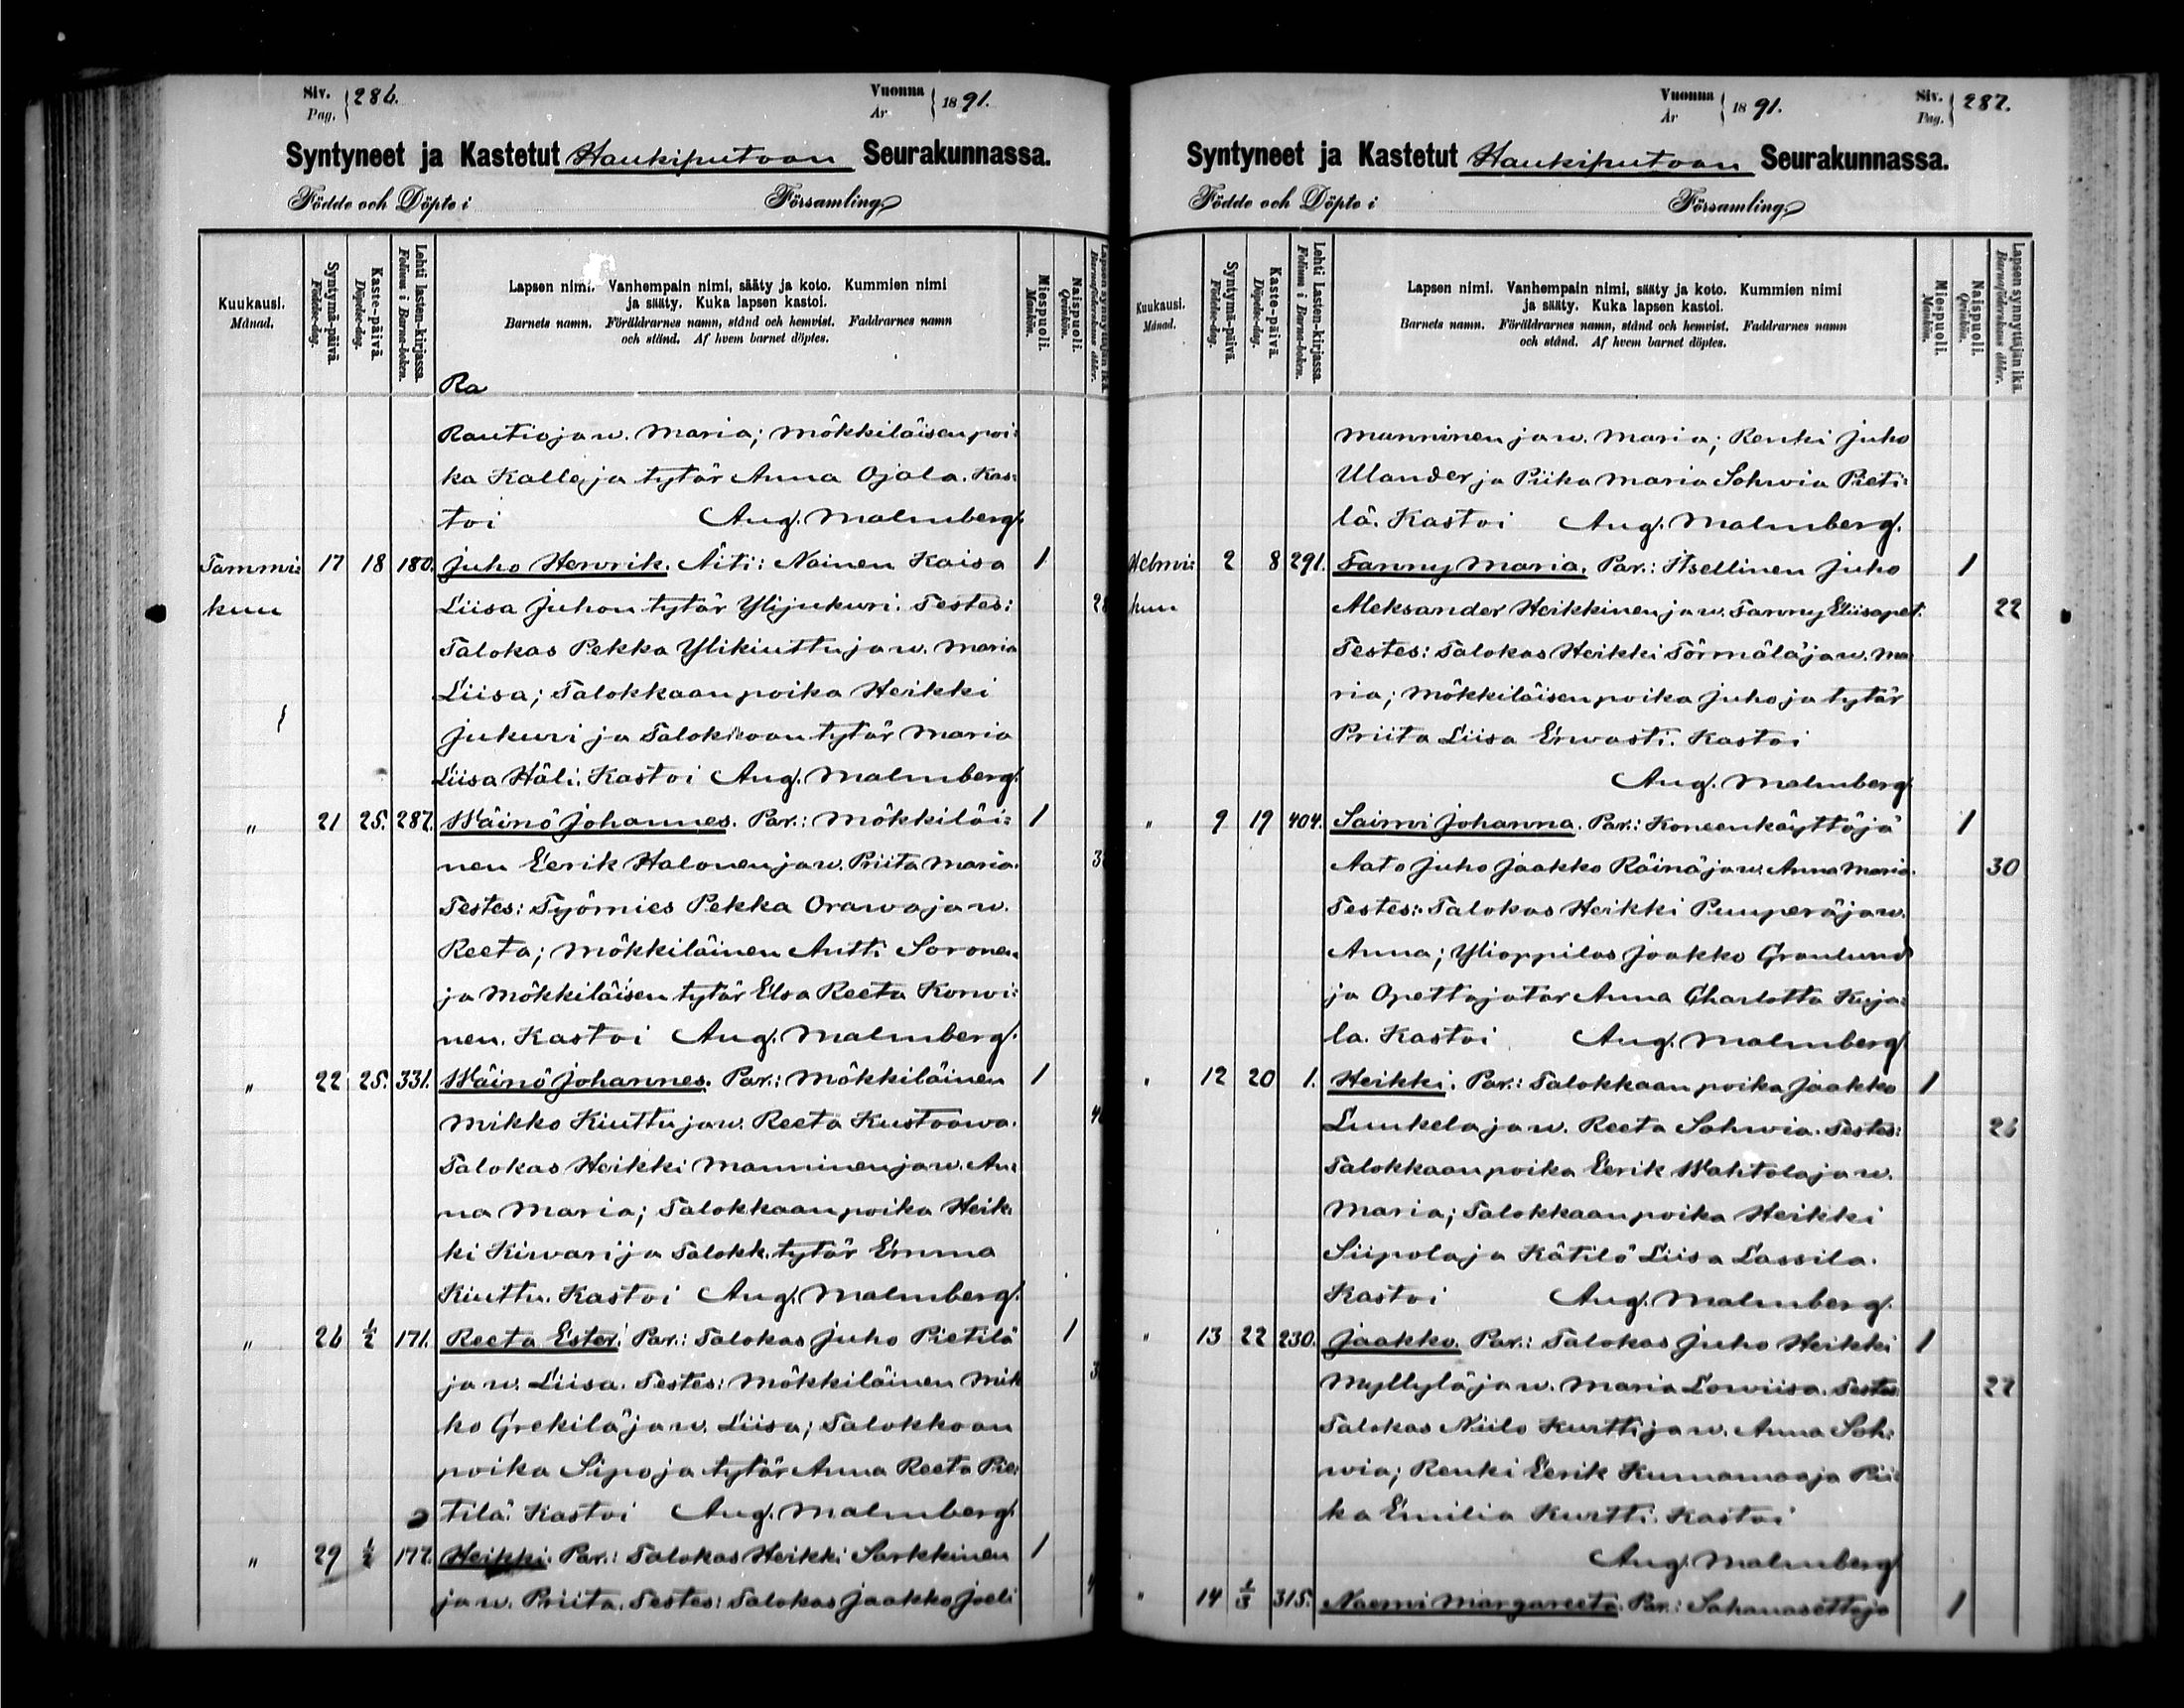 Siv. Pag. 286. Vuonna År 1891.
Syntyneet ja Kastetut Haukiputaan Seurakunnassa.
Födde och Döpte i Församling
Kuukausi. Månad. Syntymä-päivä. Födelse-dag. Kaste-päivä. Döpelse-dag. Lehti lasten-kirjassa. Folium i Barna-boken.
Lapsen nimi. Vanhempain nimi, sääty ja koto. Kummien nimi
ja sääty. Kuka lapsen kastoi.
Barnets namn. Föräldrarnes namn, stånd och hemvist. Faddrarnes namn
och stånd. Af hvem barnet döptes.
Miespuoli. Mankön. Naispuoli. Qvinkön. Lapsen synnyttäjän ikä. Barnaföderskans ålder.
Ra
Rautio ja w. Maria; Mökkiläisen poi=
ka Kalle ja tytär Anna Ojala. Kas=
toi Aug. Malmberg.
Tammi= 17 18 180. Juho Henrik. Äiti: Nainen Kaisa 1
kuu Liisa Juhon tytär Ylijukuri. Testes: 28
Talokas Pekka Ylikiuttu ja w. Maria
Liisa; Talokkaan poika Heikki
Jukuri ja Talokkaan tytär Maria
Liisa Häli. Kastoi Aug. Malmberg.
" 21 25. 287. Wäinö Johannes. Par.: Mökkiläi= 1
nen Eerik Halonen ja w. Priita Maria. 3
Testes: Työmies Pekka Orawa ja w.
Reeta; Mökkiläinen Antti Soronen
ja Mökkiläisen tytär Elsa Reeta Korwi=
nen. Kastoi Aug. Malmberg.
" 22 25. 331. Wäinö Johannes. Par.: Mökkiläinen 1
Mikko Kiuttu ja w. Reeta Kustaawa. 4
Talokas Heikki Manninen ja w. An=
na Maria; Talokkaan poika Heik=
ki Kiwari ja Talokk. tytär Emma
Kiuttu. Kastoi Aug. Malmberg.
" 26 1/2 171. Reeta Ester. Par.: Talokas Juho Pietilä 1
ja w. Liisa. Testes: Mökkiläinen Mik 3
ko Grekilä ja w. Liisa; Talokkaan
poika Sipo ja tytär Anna Reeta Pie=
tilä. Kastoi Aug. Malmberg.
" 29 1/2 177. Heikki. Par.: Talokas Heikki Sarkkinen 1
ja w. Priita. Testes: Talokas Jaakko Joeli 4
Vuonna År 1891. Siv. Pag. 287.
Syntyneet ja Kastetut Haukiputaan Seurakunnassa.
Födde och Döpte i Församling
Kuukausi. Månad. Syntymä-päivä. Födelse-dag. Kaste-päivä. Döpelse-dag. Lehti Lasten-kirjassa. Folium i Barna-boken.
Lapsen nimi. Vanhempain nimi, sääty ja koto. Kummien nimi
ja sääty. Kuka lapsen kastoi.
Barnets namn. Föräldrarnes namn, stånd och hemvist. Faddrarnes namn
och stånd. Af hvem barnet döptes.
Miespuoli. Mankön. Naispuoli. Qvinkön. Lapsen synnyttäjän ikä. Barnaföderskans ålder.
Manninen ja w. Maria; Renki Juho
Ulander ja Piika Maria Sohwia Pieti=
lä. Kastoi Aug. Malmberg.
Helmi= 2 8 291. Fanny Maria. Par.: Itsellinen Juho 1
kuu Aleksander Heikkinen ja w. Fanny Eliisapet. 22
Testes: Talokas Heikki Törmälä ja w. Ma
ria; Mökkiläisen poika Juho ja tytär
Priita Liisa Erwasti. Kastoi
Aug. Malmberg
" 9 19 404. Saimi Johanna. Par.: Koneenkäyttäjä 1
Aato Juho Jaakko Räinä ja w. Anna Maria. 30
Testes: Talokas Heikki Puuperä ja w.
Anna; Ylioppilas Jaakko Granlund
ja Opettajatar Anna Charlotta Kuja=
la. Kastoi Aug. Malmberg
" 12 20 1. Heikki. Par.: Talokkaan poika Jaakko 1
Luukela ja w. Reeta Sohwia. Testes: 26
Talokkaan poika Eerik Wahtola ja w.
Maria; Talokkaan poika Heikki
Siipola ja Kätilö Liisa Lassila.
Kastoi Aug. Malmberg.
" 13 22 230. Jaakko. Par.: Talokas Juho Heikki 1
Myllylä ja w. Maria Lowiisa. Testes 22
Talokas Niilo Kurtti ja w. Anna Soh=
wia; Renki Eerik Kunamaa ja Pii=
ka Emilia Kurtti. Kastoi
Aug. Malmberg
" 14 1/3 315. Naemi Margareeta. Par.: Sahanasettaja 1